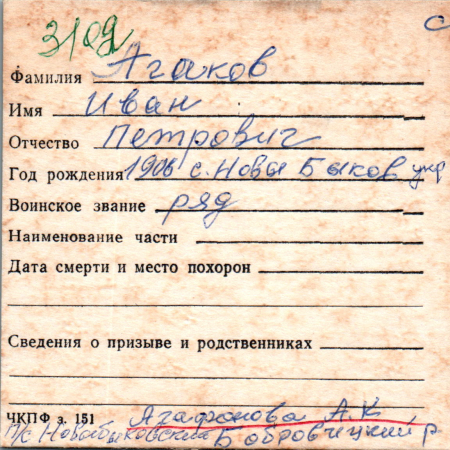 3109
с
Фамилия Агаков
Имя Иван
Отчество Петрович
Год рождения 1906 с. Новы Быков укр
Воинское звание ряд
Наименование части
Дата смерти и место похорон
Сведения о призыве и родственниках
ЧКПФ з. 151 Агафонова А. К
п/с Новобыковский Бобровицкий р